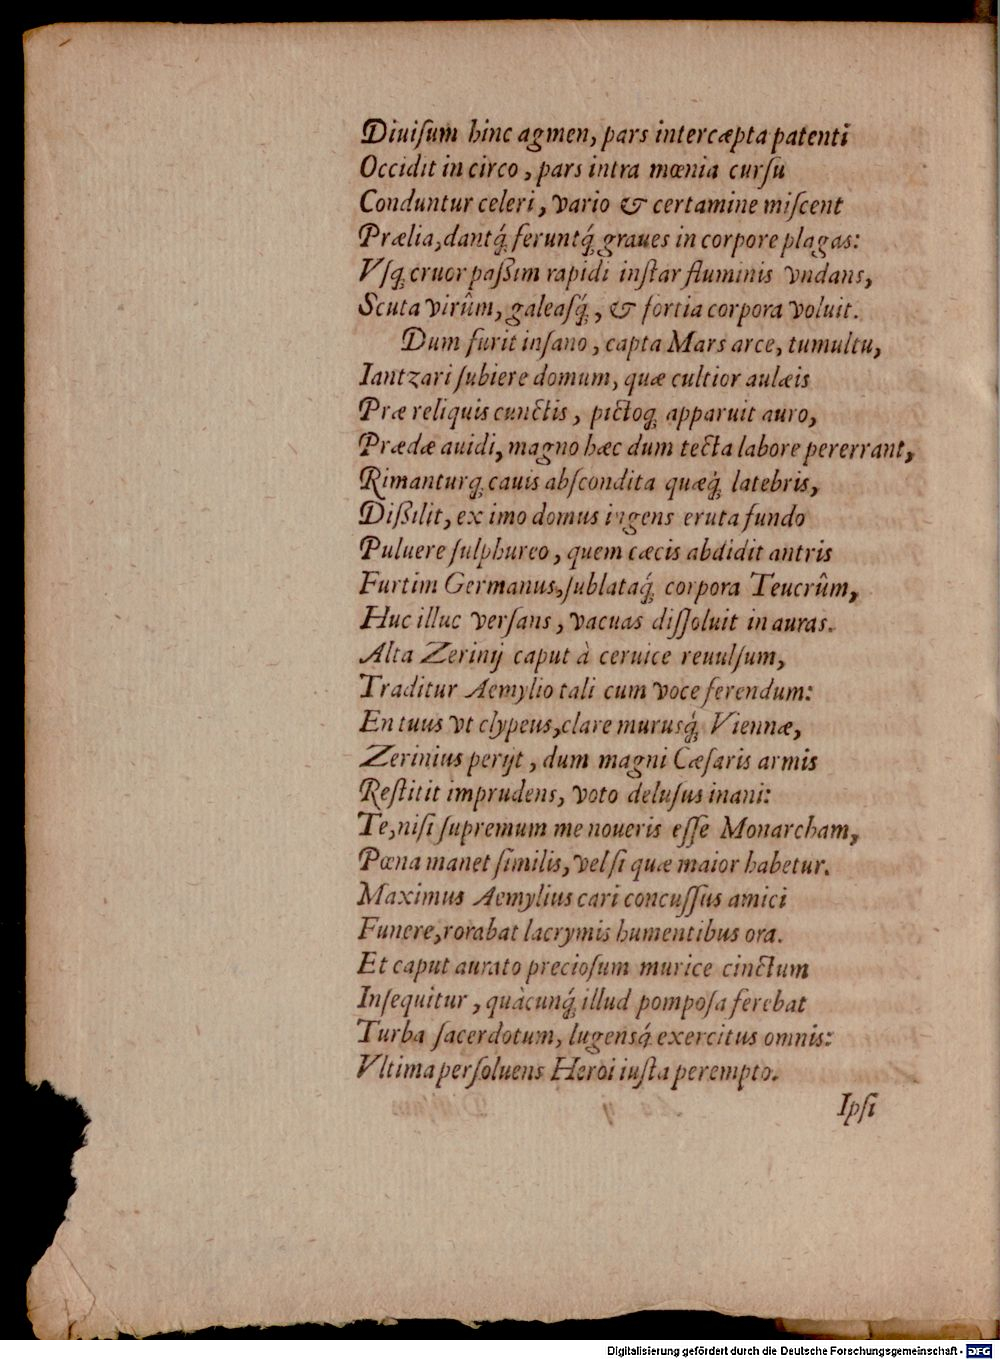 Diuiſum hinc agmen, pars intercæpta patenti
Occidit in circo, pars intra mœnia curſu
Conduntur celeri, vario & certamine miſcent
Prælia, dantq́; feruntq́; graues in corpore plagas:
Vſq; cruor paßim rapidi inſtar fluminis vndans,
Scuta virûm, galeaſq́;, & fortia corpora voluit.
Dum furit inſano, capta Mars arce, tumultu,
Iantzari ſubiere domum, quæ cultior aulæis
Præ reliquis cunctis, pictoq; apparuit auro,
Prædæ auidi, magno hæc dum tecta labore pererrant,
Rimanturq; cauis abſcondita quæq́; latebris,
Dißilit, ex imo domus ingens eruta fundo
Puluere ſulphureo, quem cæcis abdidit antris
Furtim Germanus, ſublataq́; corpora Teucrûm,
Huc illuc verſans, vacuas diſſoluit in auras.
Alta Zerinij caput à ceruice reuulſum,
Traditur Aemylio tali cum voce ferendum:
En tuus vt clypeus, clare murusq́; Viennæ,
Zerinius perijt, dum magni Cæſaris armis
Reſtitit imprudens, voto deluſus inani:
Te, niſi ſupremum me noueris eſſe Monarcham,
Pœna manet ſimilis, vel ſi quæ maior habetur.
Maximus Aemylius cari concuſſus amici
Funere, rorabat lacrymis humentibus ora.
Et caput aurato precioſum murice cinctum
Inſequitur, quàcunq́; illud pompoſa ferebat
Turba ſacerdotum, lugensq́; exercitus omnis:
Vltima perſoluens Heroi iuſta perempto.
Ipſi
Digitalisierung gefördert durch die Deutsche Forschungsgemeinschaft - DFG